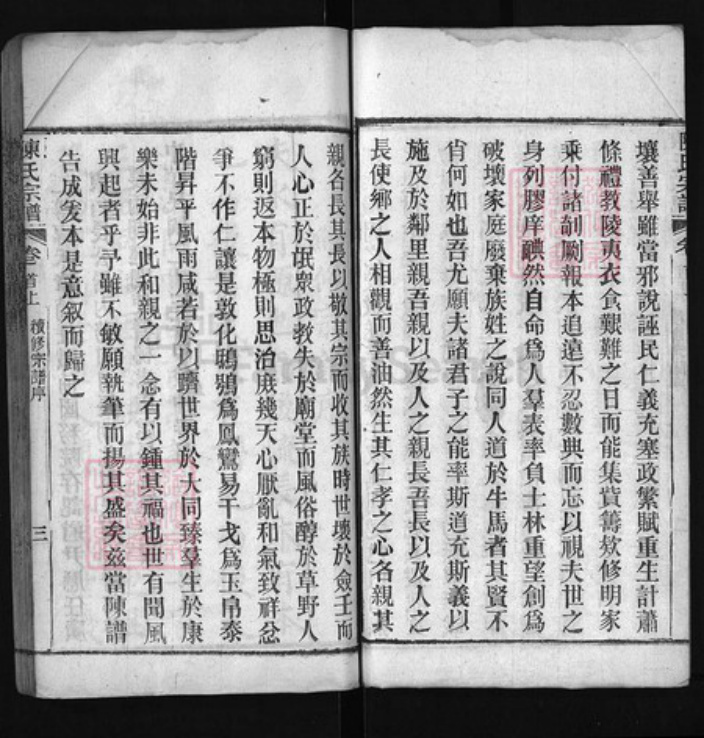 壞善舉雖當邪說誣民仁義充塞政繁賦重生計蕭
條禮教陵夷衣食艱難之日而能集貲籌欸修明家
乘付諸剞劂報本追遠不忍數典而忘以視夫世之
身列膠庠靦然自命爲人羣表率負士林重望創爲
破壞家庭廢棄族姓之說同人道於牛馬者其賢不
肖何如也吾尤願夫諸君子之能率斯道充斯義以
施及於鄰里親吾親以及人之親長吾長以及人之
長使鄉之人相觀而善油然生其仁孝之心各親其
親各長其長以敬其宗而收其族時世壞於僉壬而
人心正於氓衆政教失於廟堂而風俗醇於草野人
窮則返本物極則思治庶幾天心厭亂和氣致祥忿
爭不作仁讓是敦化鴟鴞爲鳳鸞易干戈爲玉帛泰
階昇平風雨咸若於以躋世界於大同臻羣生於康
樂未始非此和親之一念有以鍾其福也世有聞風
興起者乎予雖不敏願執筆而揚其盛矣茲當陳譜
告成爰本是意叙而歸之
陳氏宗譜
卷首上
續修宗譜序
三